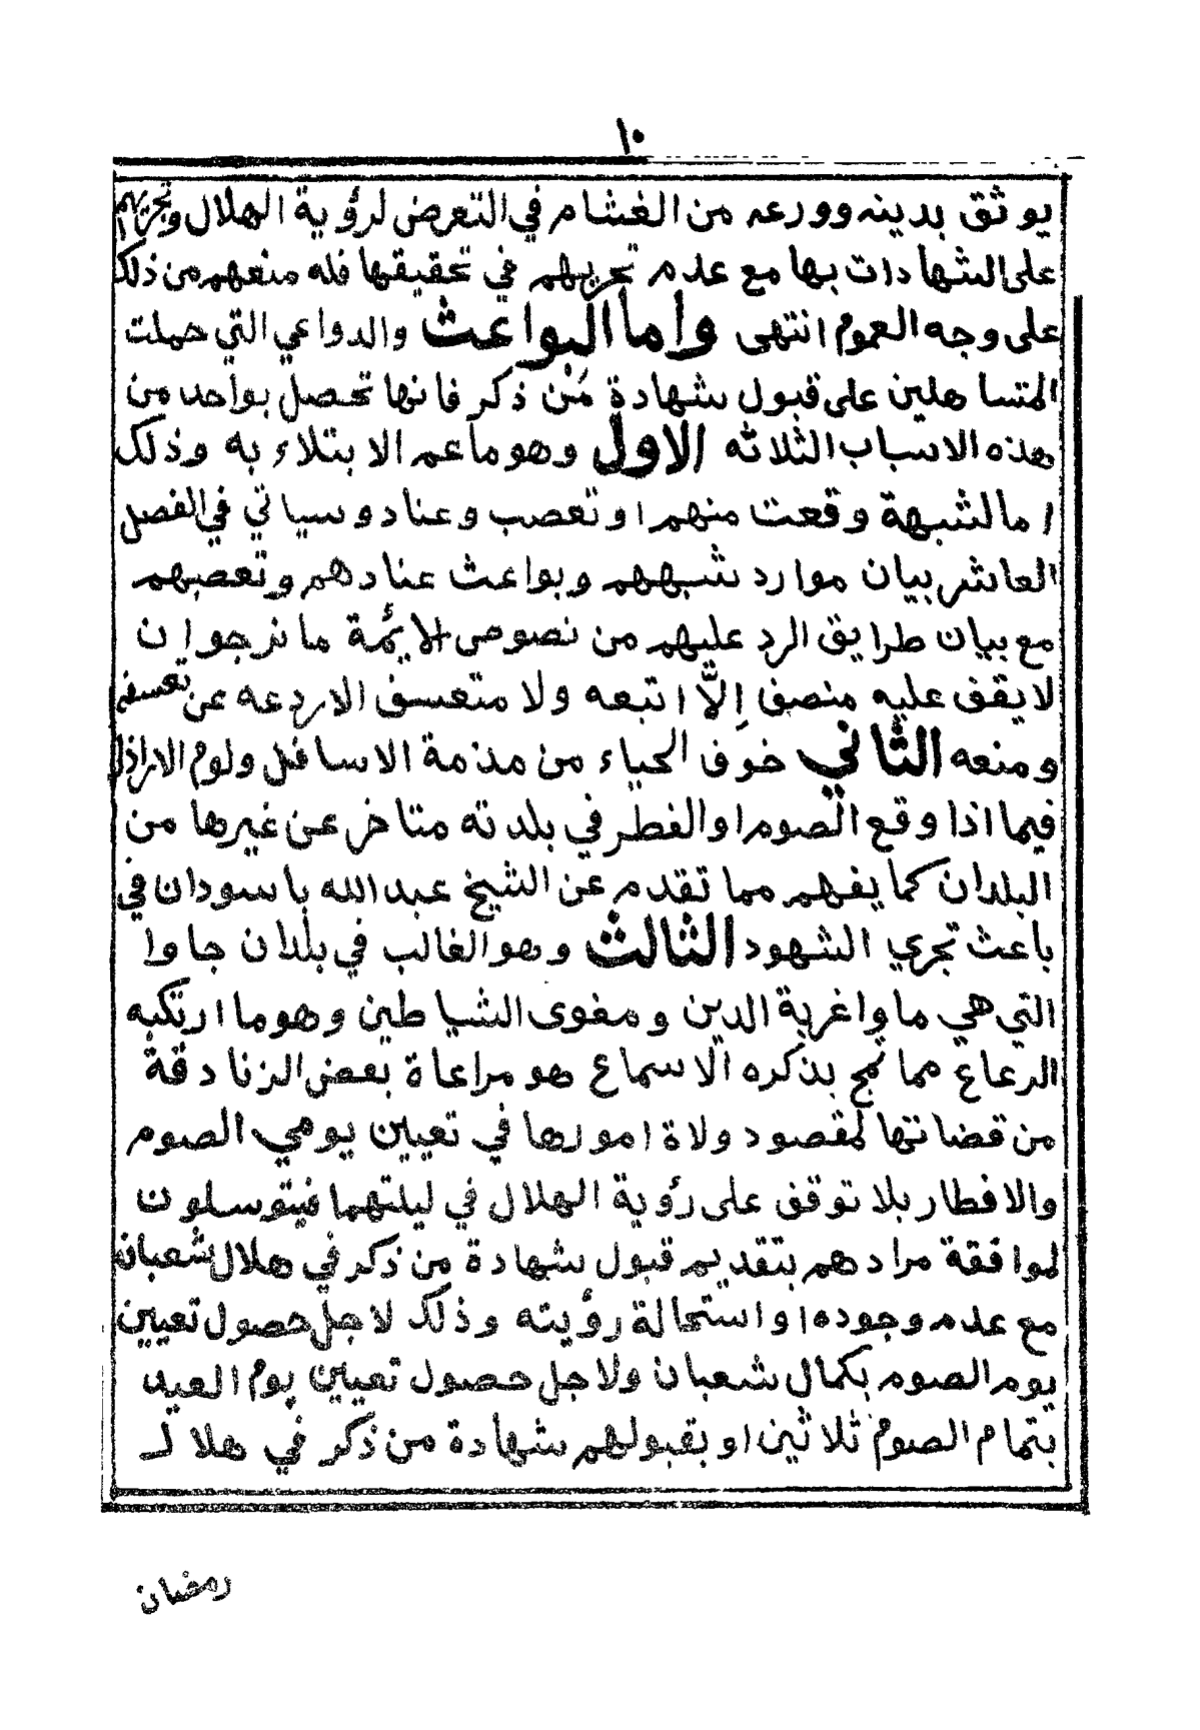 ١٠
يوثق بدينه وورعه من الغشام في التعرض لرؤية الهلال وتجريهم
على الشهادات بها مع عدم تحريهم في تحقيقها فله منعهم من ذلك
على وجه العموم انتهى واما البواعث والدواعي التي حملت
المتساهلين على قبول شهادة مَنْ ذكر فانها تحصل بواحد من
هذه الاسباب الثلاثه الاول وهو ما عم الابتلاء به وذلك
اما لشبهة وقعت منهم او تعصب وعناد وسياتي في الفصل
العاشر بيان موارد شبههم وبواعث عنادهم وتعصبهم
مع بيان طرايق الرد عليهم من نصوص الايمّة ما نرجوا ن
لا يقف عليه منصف اِلاَّ اتبعه ولا متعسف الا ردعه عن تعسفه
ومنعه الثاني خوف الحياء من مذمة الاسافل ولوم الاراذل
فيما اذا وقع الصوم او الفطر في بلدته متاخر عن غيرها من
البلدان كما يفهم مما تقدم عن الشيخ عبد الله باسودان في
باعث تجري الشهود الثالث وهو الغالب في بلدان جاوا
التي هي ماوا غربة الدين ومغوى الشياطين وهو ما ارتكبه
الرعاع مما تمج بذكره الاسماع هو مراعاة بعض الزنادقة
من قضاتها لمقصود ولاة امورها في تعيين يومي الصوم
والافطار بلا توقف على رؤية الهلال في ليلتهما فيتوسلون
لموافقة مرادهم بتقديم قبول شهادة من ذكر في هلال شعبان
مع عدم وجوده او استحالة رؤيته وذلك لاجل حصول تعيين
يوم الصوم بكمال شعبان ولاجل حصول تعيين يوم العيد
بتمام الصوم ثلاثين او بقبولهم شهادة من ذكر في هلال
رمضان